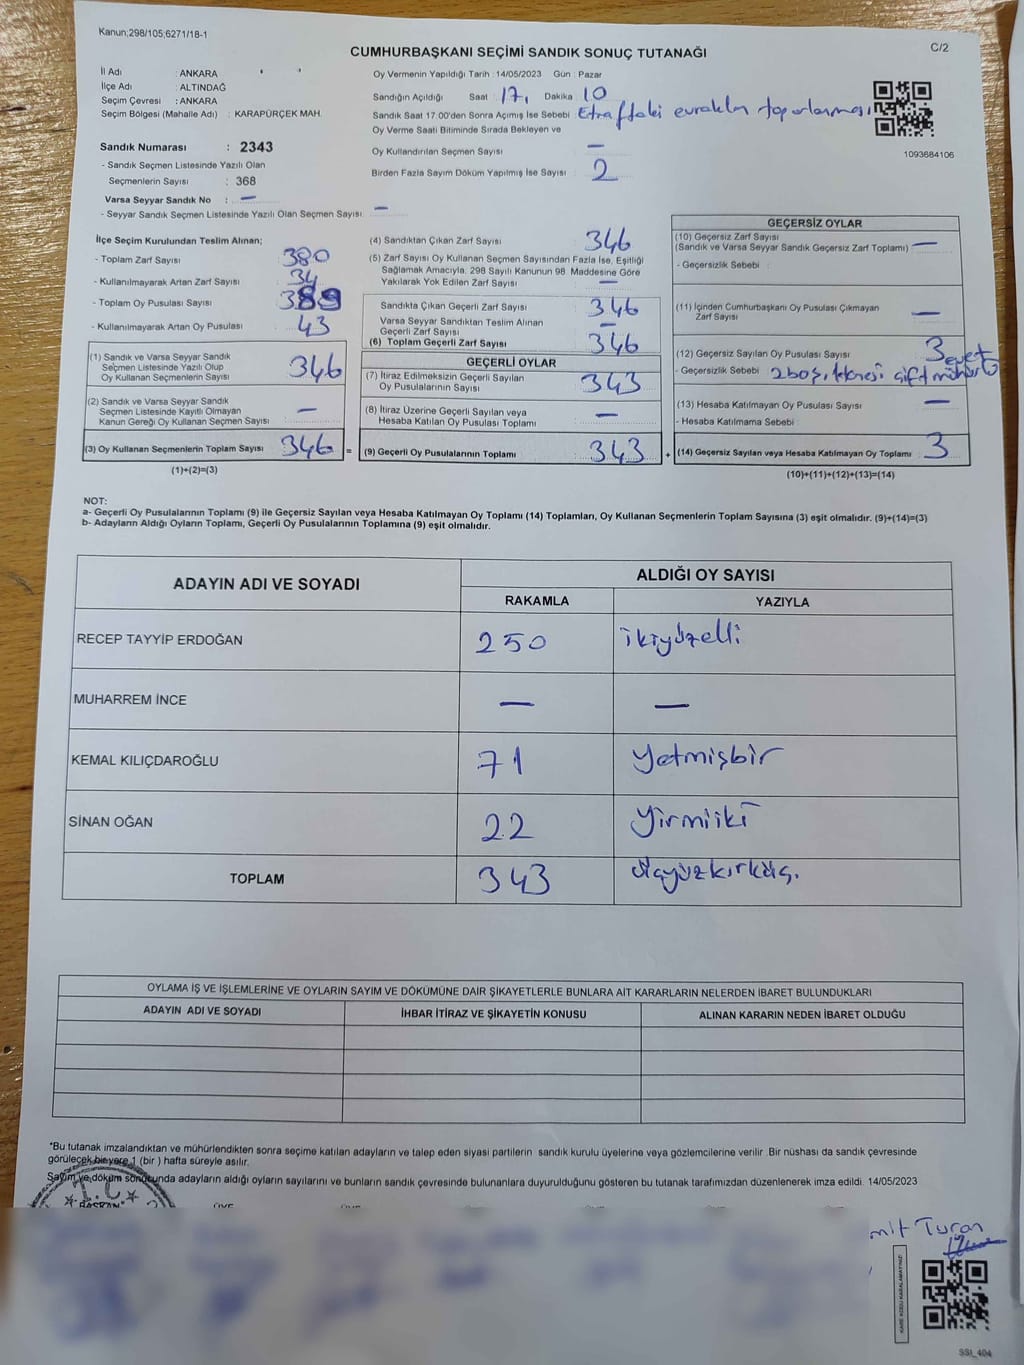 Kanun;298/105;6271/18-1
C/2
CUMHURBAŞKANI SEÇİMİ SANDIK SONUÇ TUTANAĞI
İl Adı : ANKARA
İlçe Adı : ALTINDAĞ
Seçim Çevresi : ANKARA
Seçim Bölgesi (Mahalle Adı) : KARAPÜRÇEK MAH.
Sandık Numarası : 2343
- Sandık Seçmen Listesinde Yazılı Olan
Seçmenlerin Sayısı : 368
Varsa Seyyar Sandık No : —
- Seyyar Sandık Seçmen Listesinde Yazılı Olan Seçmen Sayısı : —
Oy Vermenin Yapıldığı Tarih : 14/05/2023 Gün : Pazar
Sandığın Açıldığı Saat 17, Dakika 10
Sandık Saat 17:00'den Sonra Açımış İse Sebebi Etraftaki evrakların toparlanması
Oy Verme Saati Bitiminde Sırada Bekleyen ve
Oy Kullandırılan Seçmen Sayısı —
Birden Fazla Sayım Döküm Yapılmış İse Sayısı 2
1093684106
İlçe Seçim Kurulundan Teslim Alınan;
- Toplam Zarf Sayısı 380
- Kullanılmayarak Artan Zarf Sayısı 34
- Toplam Oy Pusulası Sayısı 389
- Kullanılmayarak Artan Oy Pusulası 43
(1) Sandık ve Varsa Seyyar Sandık
Seçmen Listesinde Yazılı Olup
Oy Kullanan Seçmenlerin Sayısı 346
(2) Sandık ve Varsa Seyyar Sandık
Seçmen Listesinde Kayıtlı Olmayan
Kanun Gereği Oy Kullanan Seçmen Sayısı —
(3) Oy Kullanan Seçmenlerin Toplam Sayısı 346 =
(1)+(2)=(3)
(4) Sandıktan Çıkan Zarf Sayısı 346
(5) Zarf Sayısı Oy Kullanan Seçmen Sayısından Fazla İse, Eşitliği
Sağlamak Amacıyla, 298 Sayılı Kanunun 98. Maddesine Göre
Yakılarak Yok Edilen Zarf Sayısı —
Sandıkta Çıkan Geçerli Zarf Sayısı 346
Varsa Seyyar Sandıktan Teslim Alınan
Geçerli Zarf Sayısı —
(6) Toplam Geçerli Zarf Sayısı 346
GEÇERLİ OYLAR
(7) İtiraz Edilmeksizin Geçerli Sayılan
Oy Pusulalarının Sayısı 343
(8) İtiraz Üzerine Geçerli Sayılan veya
Hesaba Katılan Oy Pusulası Toplamı —
(9) Geçerli Oy Pusulalarının Toplamı 343 +
GEÇERSİZ OYLAR
(10) Geçersiz Zarf Sayısı
(Sandık ve Varsa Seyyar Sandık Geçersiz Zarf Toplamı) —
- Geçersizlik Sebebi :
(11) İçinden Cumhurbaşkanı Oy Pusulası Çıkmayan
Zarf Sayısı —
(12) Geçersiz Sayılan Oy Pusulası Sayısı 3
- Geçersizlik Sebebi 2 boş, çift mühür
(13) Hesaba Katılmayan Oy Pusulası Sayısı —
- Hesaba Katılmama Sebebi
(14) Geçersiz Sayılan veya Hesaba Katılmayan Oy Toplamı 3
(10)+(11)+(12)+(13)=(14)
NOT:
a- Geçerli Oy Pusulalarının Toplamı (9) ile Geçersiz Sayılan veya Hesaba Katılmayan Oy Toplamı (14) Toplamları, Oy Kullanan Seçmenlerin Toplam Sayısına (3) eşit olmalıdır. (9)+(14)=(3)
b- Adayların Aldığı Oyların Toplamı, Geçerli Oy Pusulalarının Toplamına (9) eşit olmalıdır.
ADAYIN ADI VE SOYADI
ALDIĞI OY SAYISI
RAKAMLA YAZIYLA
RECEP TAYYİP ERDOĞAN 250 ikiyüzelli
MUHARREM İNCE — —
KEMAL KILIÇDAROĞLU 71 Yetmişbir
SİNAN OĞAN 22 Yirmiiki
TOPLAM 343 üçyüzkırküç.
OYLAMA İŞ VE İŞLEMLERİNE VE OYLARIN SAYIM VE DÖKÜMÜNE DAİR ŞİKAYETLERLE BUNLARA AİT KARARLARIN NELERDEN İBARET BULUNDUKLARI
ADAYIN ADI VE SOYADI İHBAR İTİRAZ VE ŞİKAYETİN KONUSU ALINAN KARARIN NEDEN İBARET OLDUĞU
*Bu tutanak imzalandıktan ve mühürlendikten sonra seçime katılan adayların ve talep eden siyasi partilerin sandık kurulu üyelerine veya gözlemcilerine verilir. Bir nüshası da sandık çevresinde
görülecek bir yere 1 (bir ) hafta süreyle asılır.
Sayım ve döküm sonucunda adayların aldığı oyların sayılarını ve bunların sandık çevresinde bulunanlara duyurulduğunu gösteren bu tutanak tarafımızdan düzenlenerek imza edildi. 14/05/2023
T.C.
BAŞKAN
ÜYE ÜYE ÜYE
mit Turan
KARE KODU KARALAMAYINIZ
SSI_404